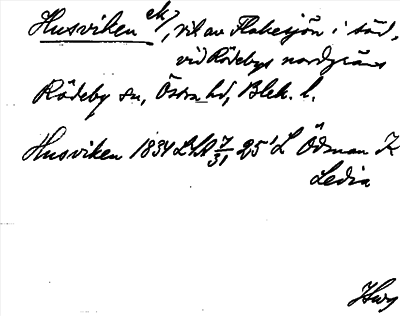 Husviken ek/, vik av Flakesjön i söd,
vid Rödebys nordgräns
Rödeby sn, Östra hd, Blek. l.
Husviken 1834 LSA 7/31 25' L Ödman K
Ledia